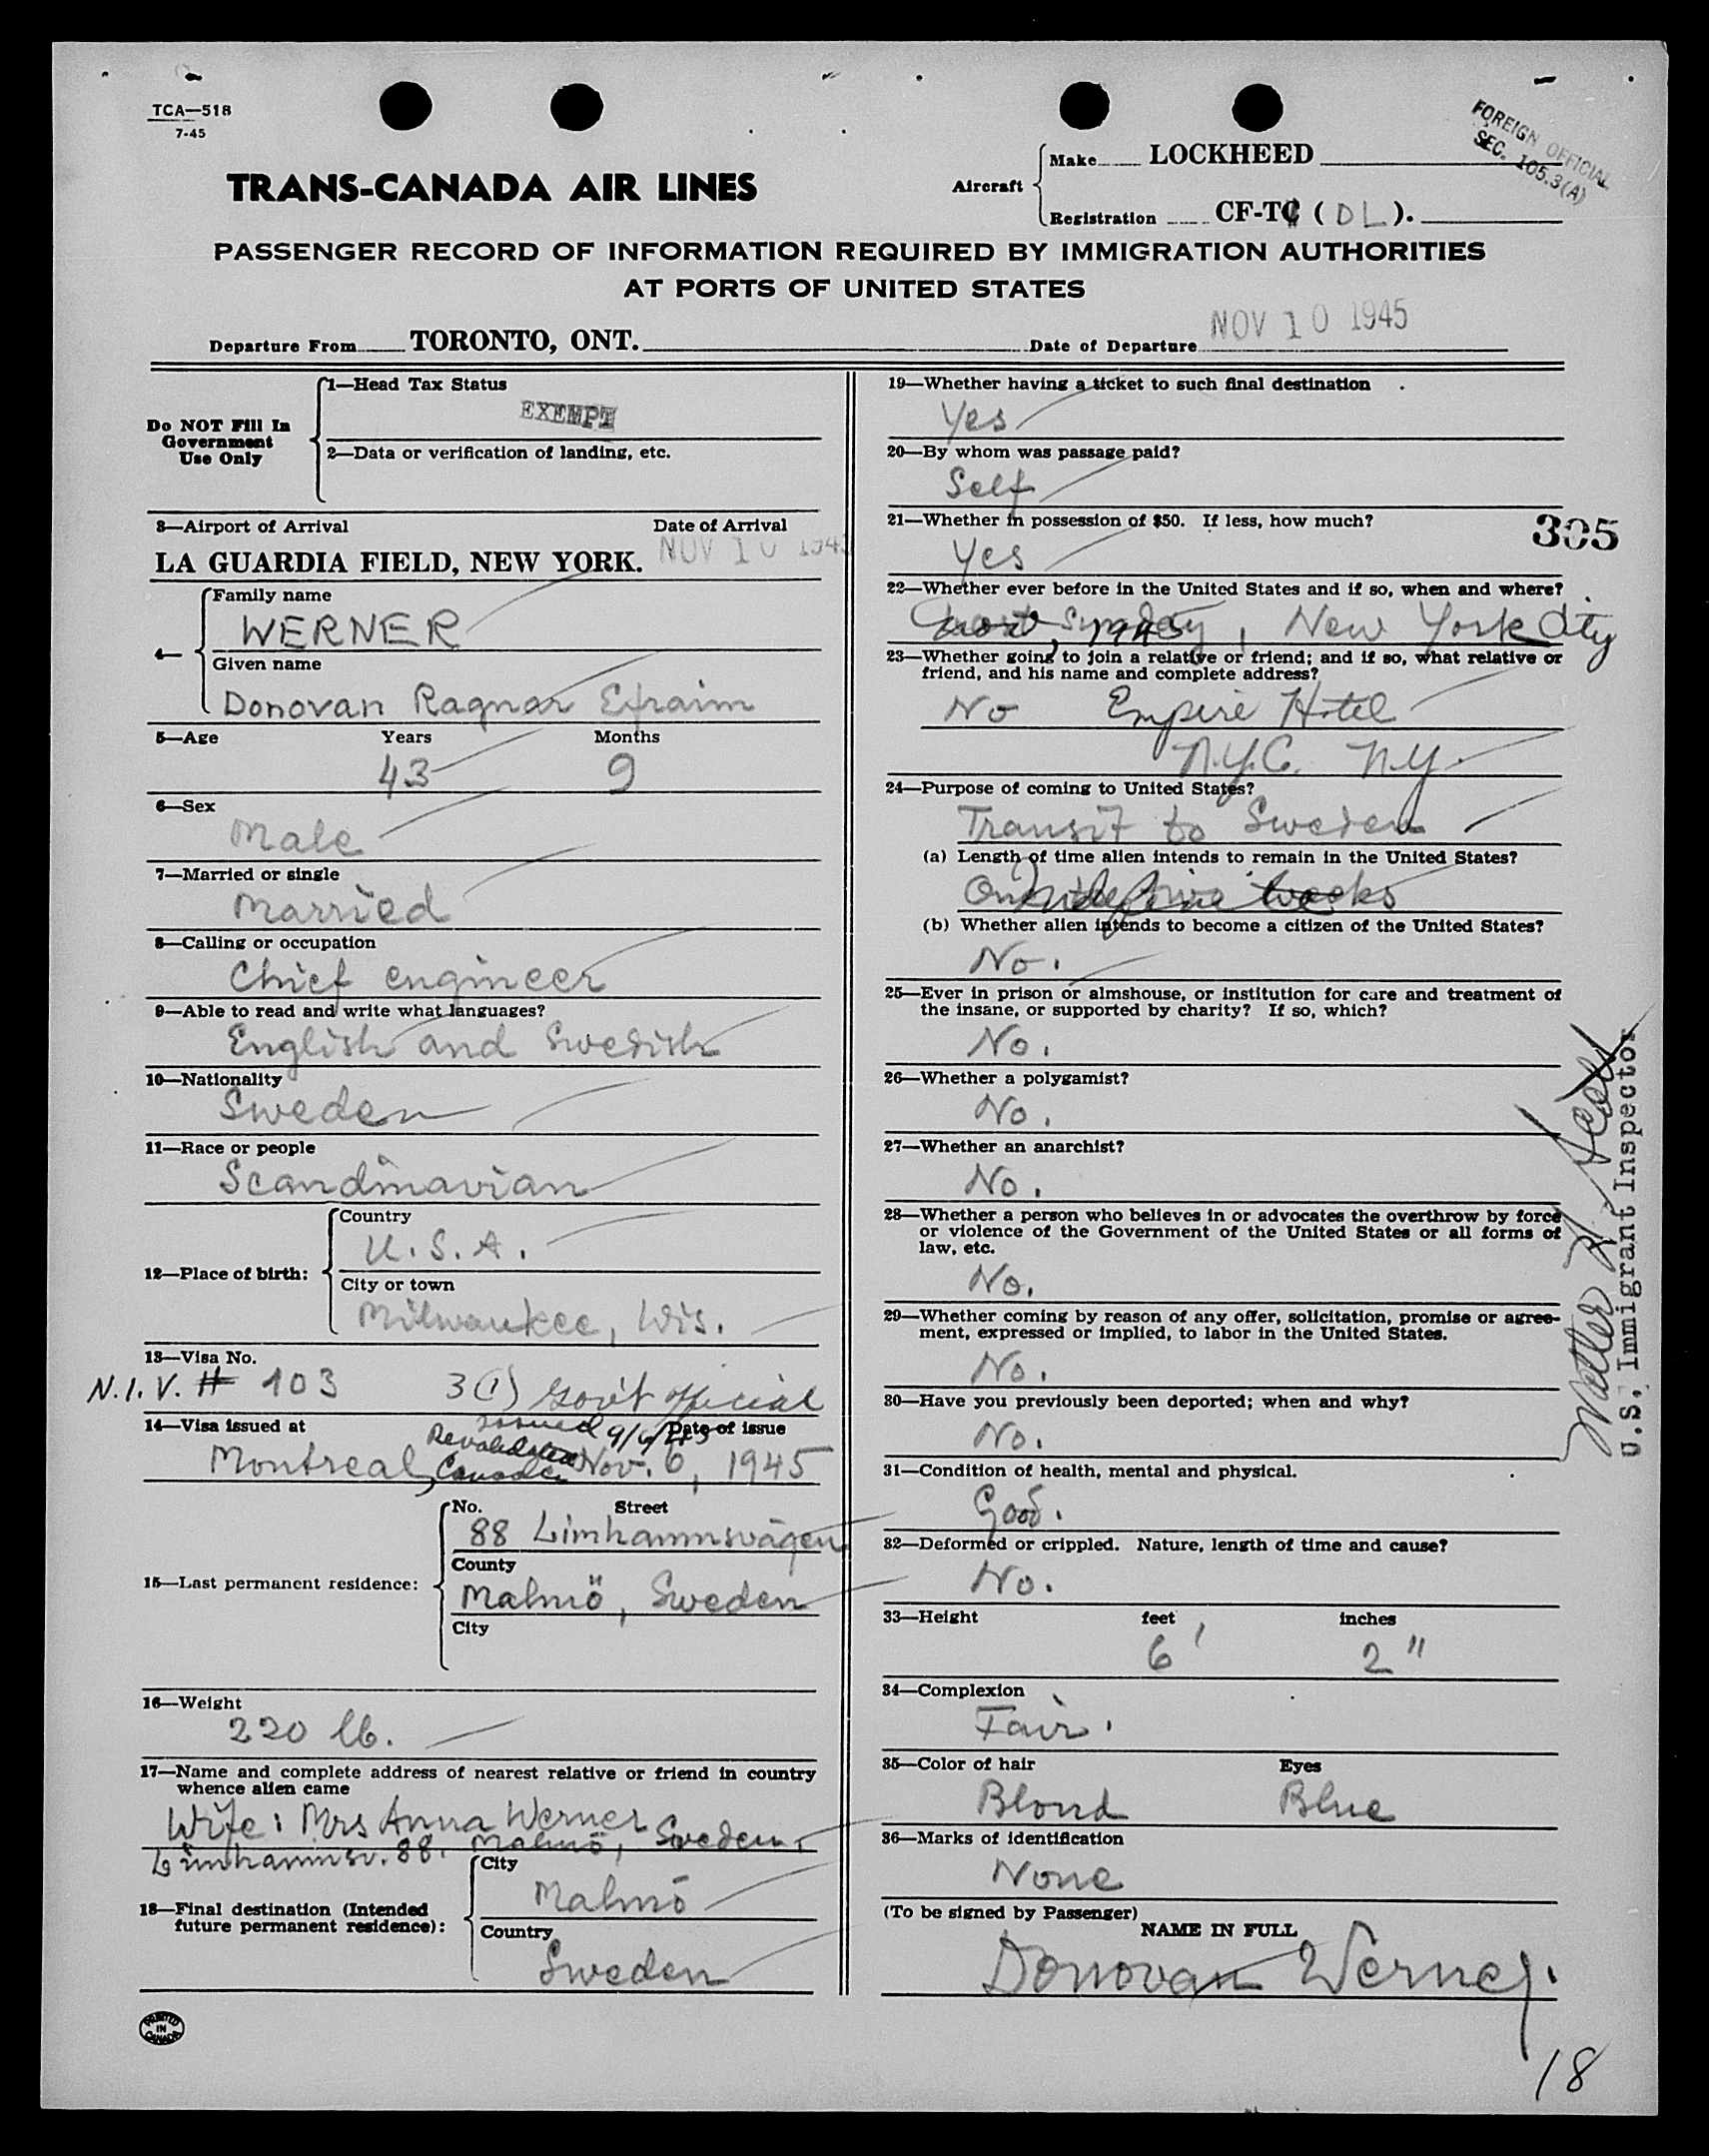 TCA—518
7-45
FOREIGN OFFICIAL
SEC. 105.3(A)
TRANS-CANADA AIR LINES
Aircraft
Make LOCKHEED
Registration CF-TC (DL).
PASSENGER RECORD OF INFORMATION REQUIRED BY IMMIGRATION AUTHORITIES
AT PORTS OF UNITED STATES
Departure From TORONTO, ONT. Date of Departure NOV 10 1945
Do NOT Fill In
Government
Use Only
1—Head Tax Status
EXEMPT
2—Data or verification of landing, etc.
3—Airport of Arrival Date of Arrival
LA GUARDIA FIELD, NEW YORK. NOV 10 1945
4—
Family name
WERNER
Given name
Donovan Ragnar Efraim
5—Age Years Months
43 9
6—Sex
Male
7—Married or single
Married
8—Calling or occupation
Chief engineer
9—Able to read and write what languages?
English and Swedish
10—Nationality
Sweden
11—Race or people
Scandinavian
12—Place of birth:
Country
U.S.A.
City or town
Milwaukee, Wis.
13—Visa No.
N.I.V. # 103 3(1) Gov't official
14—Visa issued at Date of issue
issued 9/6/45
Revalidated
Montreal, Canada Nov. 6, 1945
15—Last permanent residence:
No. Street
88 Limhamnsvägen
County
Malmö, Sweden
City
16—Weight
220 lb.
17—Name and complete address of nearest relative or friend in country
whence alien came
Wife: Mrs Anna Werner
Limhamnsv. 88. Malmö, Sweden.
18—Final destination (Intended
future permanent residence):
City
Malmö
Country
Sweden
PRINTED
IN
CANADA
19—Whether having a ticket to such final destination
Yes
20—By whom was passage paid?
Self
21—Whether in possession of $50. If less, how much?
Yes
305
22—Whether ever before in the United States and if so, when and where?
Sunday, 1945, New York City
23—Whether going to join a relative or friend; and if so, what relative or
friend, and his name and complete address?
No Empire Hotel
N.Y.C. N.Y.
24—Purpose of coming to United States?
Transit to Sweden
(a) Length of time alien intends to remain in the United States?
weeks
(b) Whether alien intends to become a citizen of the United States?
No.
25—Ever in prison or almshouse, or institution for care and treatment of
the insane, or supported by charity? If so, which?
No.
26—Whether a polygamist?
No.
27—Whether an anarchist?
No.
28—Whether a person who believes in or advocates the overthrow by force
or violence of the Government of the United States or all forms of
law, etc.
No.
29—Whether coming by reason of any offer, solicitation, promise or agree-
ment, expressed or implied, to labor in the United States.
No.
30—Have you previously been deported; when and why?
No.
31—Condition of health, mental and physical.
Good.
32—Deformed or crippled. Nature, length of time and cause?
No.
33—Height feet inches
6' 2"
34—Complexion
Fair.
35—Color of hair Eyes
Blond Blue
36—Marks of identification
None
(To be signed by Passenger)
NAME IN FULL
Donovan Werner.
U.S. Immigrant Inspector
18